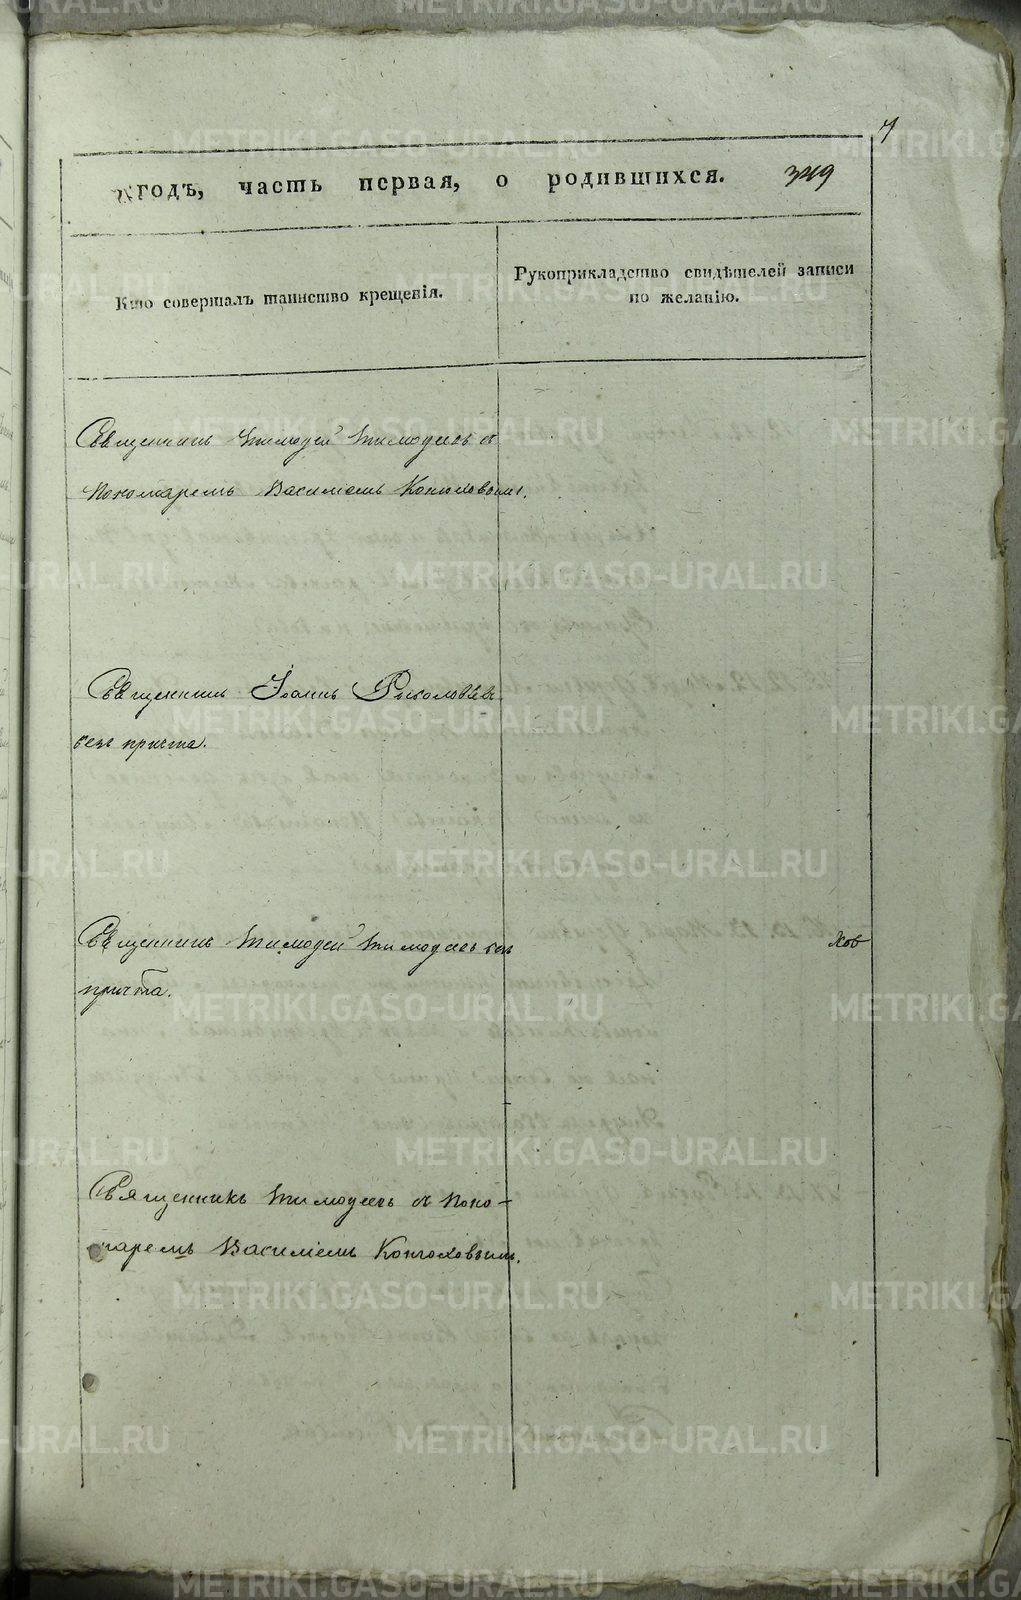 7
годъ, часть первая, о родившихся. 349
Кто совершалъ таинство крещенія.
Рукоприкладство свидѣтелей записи
по желанію.
Священникъ Тимофей Тимофеевъ съ
Пономаремъ Василіемъ Конюховымъ.
Священникъ Іоаннъ
безъ причта.
Священникъ Тимофей Тимофеевъ безъ
причта.
ков
Священникъ Тимофеевъ съ Поно-
маремъ Василіемъ Конюховымъ.
METRIKI.GASO-URAL.RU